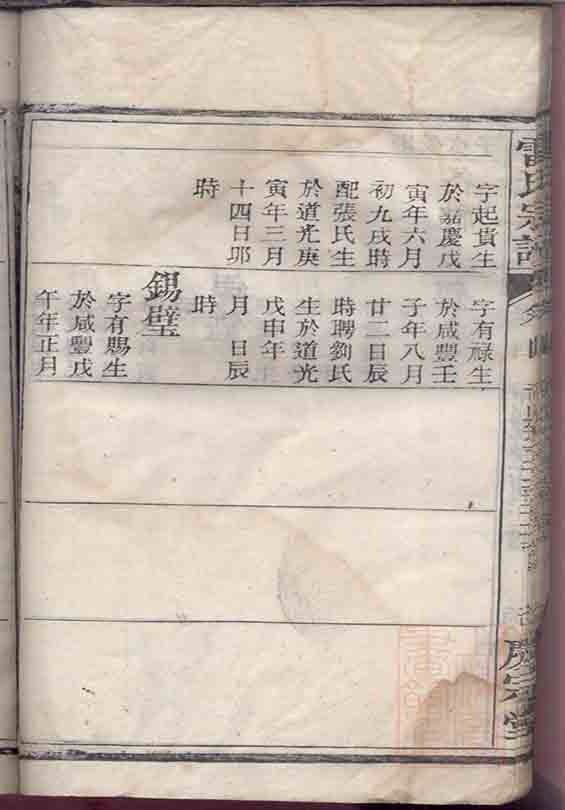 雷氏宗譜
卷四
慶宗堂
字起貴生
於嘉慶戊
寅年六月
初九戌時
配張氏生
於道光庚
寅年三月
十四日卯
時
字有祿生
於咸豐壬
子年八月
廿二日辰
時聘劉氏
生於道光
戊申年
月 日辰
時
錫璧
字有賜生
於咸豐戊
午年正月